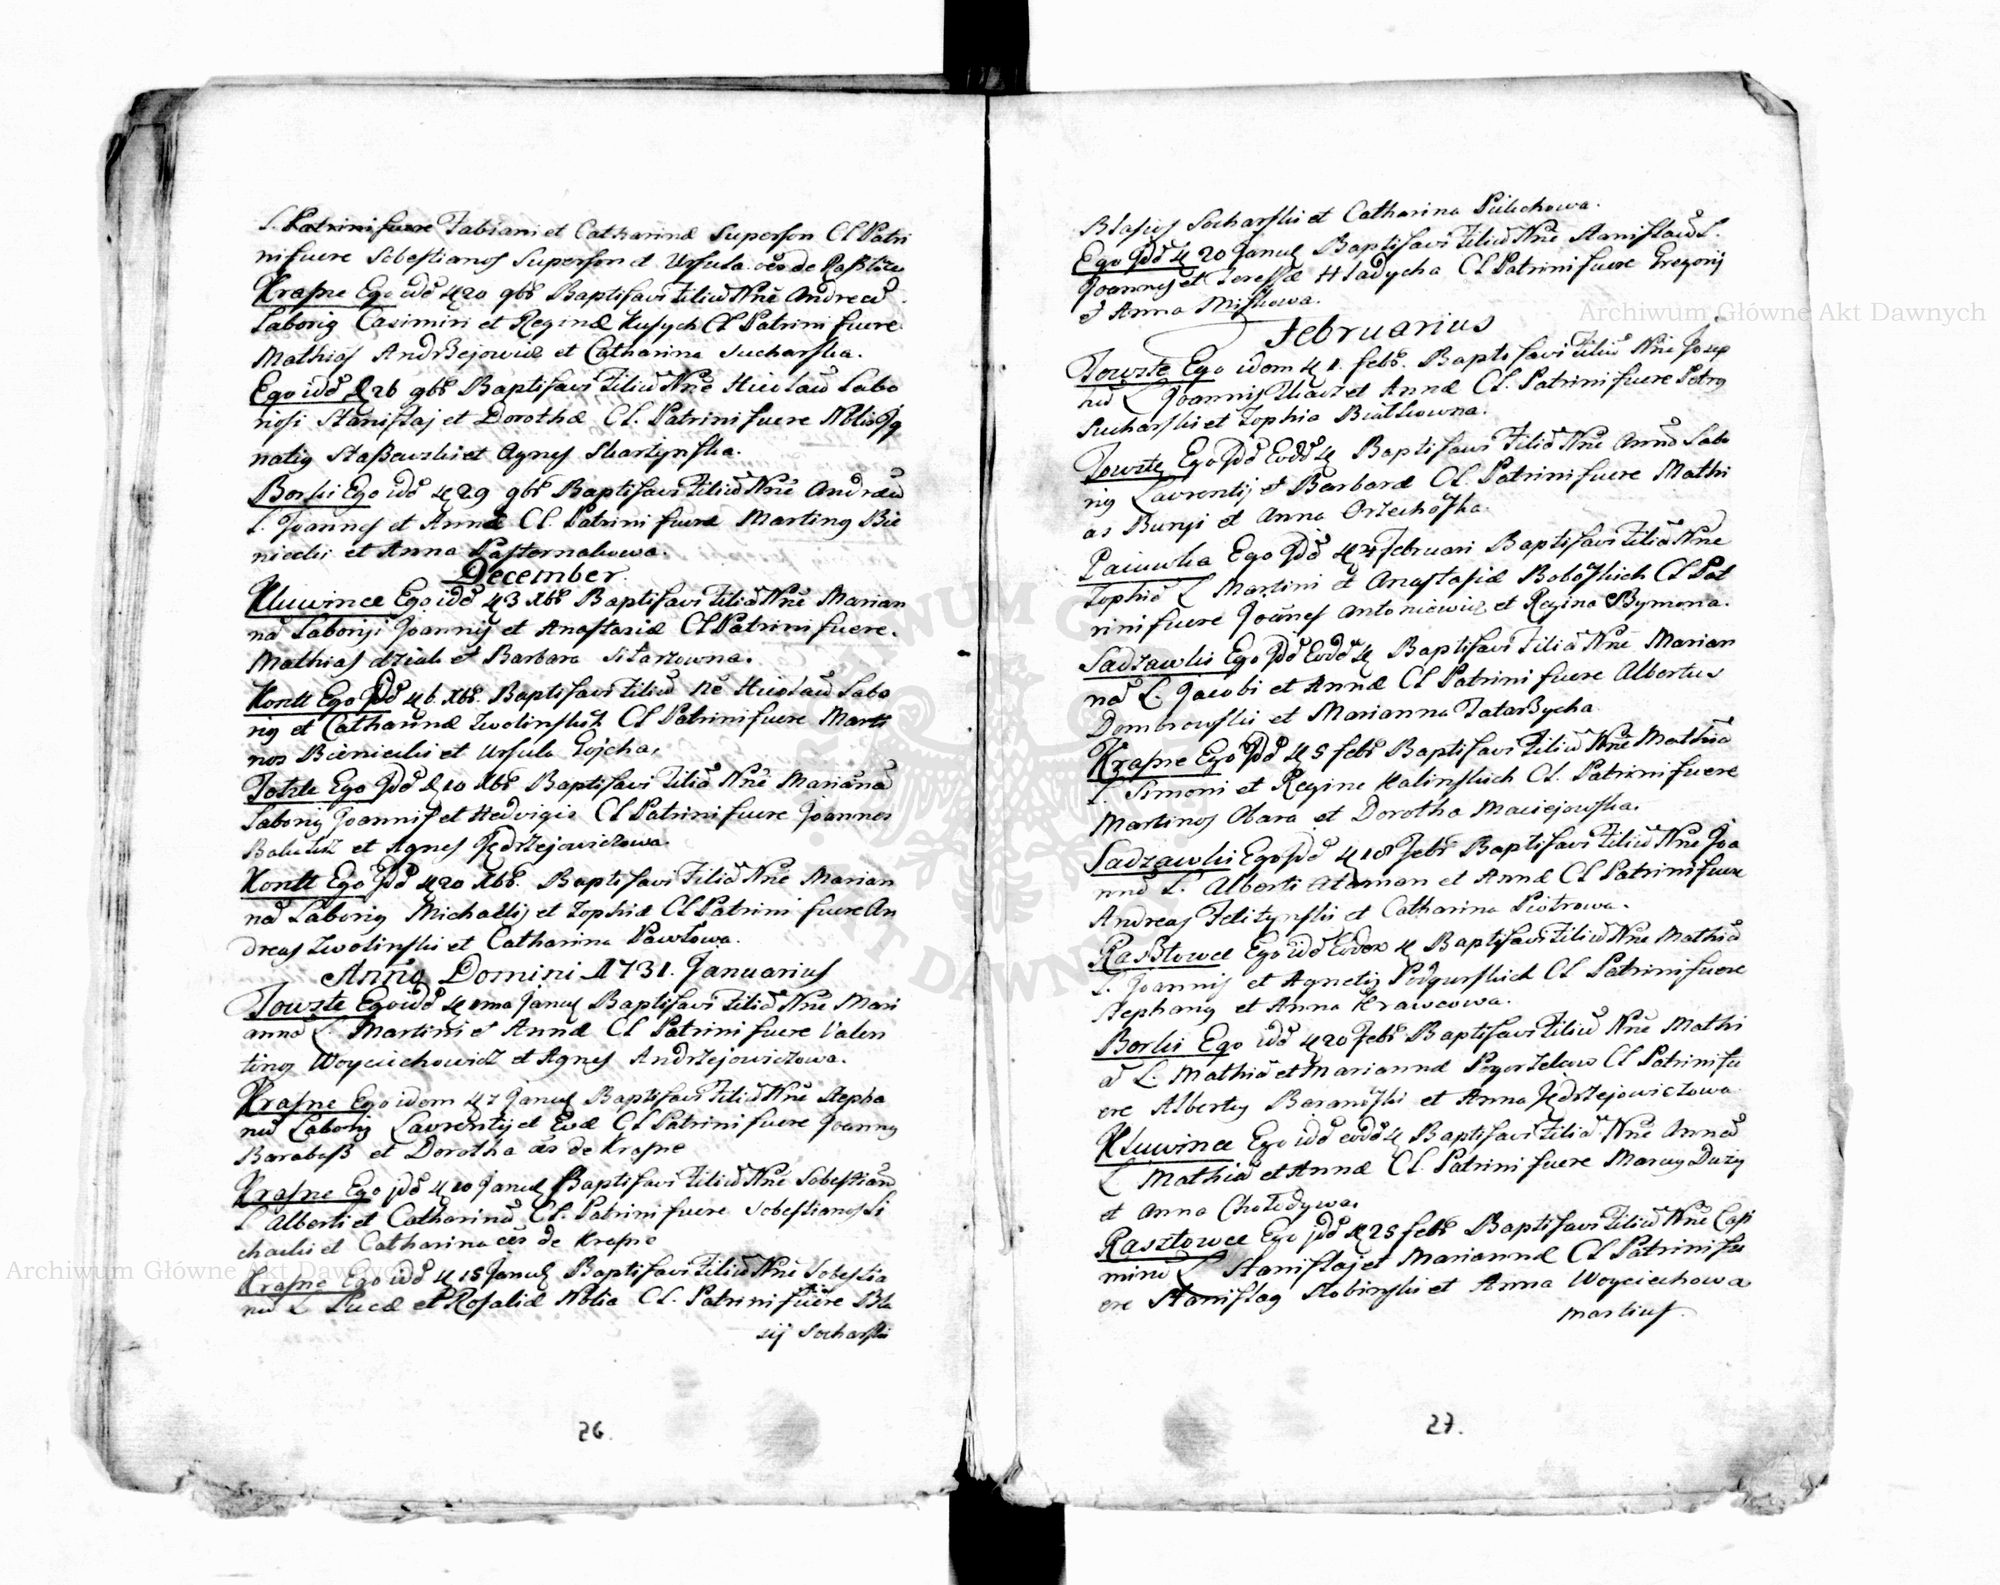 L. Patrini fuere Fabiani et Catharinæ Superson Cl Patri
ni fuere Sebestianos Superson et Ursula oēs de Rasztow
Krasne Ego idē 20 9brē Baptisavi Filiū Nnē Andreū
Laborig Casimiri et Reginæ Kusych Cl Patrini fuere
Mathias Andrzejowicz et Catharina Sucharska.
Ego idē 26 9brē Baptisavi Filiū Nnē Nicolaū Labo
riosi Stanislaj et Dorothæ Cl. Patrini fuere Nblis Jg
natig Staszewski et Agnes Skartynska.
Borki Ego idē 29 9brē Baptisavi Filiū Nnē Andræū
L. Joannes et Annæ Cl. Patrini fuere Marting Bie
niecki et Anna Pasternakowa.
December.
Kluwince Ego idē 3 Xbrē Baptisavi Filiā Nnē Marian
nā Laborigi Joannis et Anastasiæ Cl Patrini fuere.
Mathias dziak et Barbara Sitarzowna.
Kontt Ego Jdē 6. Xbrē. Baptisavi Filiū Nē Nicolaū Labo
rig et Catharinnæ Zwolinskich Cl Patrini fuere Marti
nos Bieniecki et Ursula Gojcha.
Totste Ego Jdē 10 Xbrē Baptisavi Filiā Nnē Mariānā
Laborig Joannis et Hedvigis Cl Patrini fuere Joannes
et Agnes Jędrzejowiczowa.
Kontt Ego Jdē 20 Xbrē. Baptisavi Filiā Nnē Marian
nā Laborig Michaelis et Zophiæ Cl Patrini fuere An
dreas Zwolinski et Catharina Pawlowa.
Anno Domini 1731. Januarius
Towste Ego idē 1ma Janu Baptisavi Filiā Nnē Mari
annā L. Martini et Annæ Cl Patrini fuere Valen
ting Woyciechowicz et Agnes Andrzejowiczowa.
Krasne Ego idem 7 Janu Baptisavi Filiū Nnē Stepha
nū Laborig Laurentij et Evæ Cl Patrini fuere Joanng
Barabasz et Dorotha oēs de Krasne
Krasne Ego jdē 10 Janu Baptisavi Filiū Nnē Sebestianū
L Alberti et Catharinæ Cl. Patrini fuere Sebestianos Si
charki et Catharina oēs de Krasne
Krasne Ego idē 15 Janu Baptisavi Filiū Nnē Sebestia
nū L Lucæ et Rosaliæ Noblia Cl. Patrini fuere Bla
sij Socharski
26.
Blasius Socharski et Catharina Pulichowa.
Ego Jdē 20 Janu Baptisavi Filiū Nnē Stanislaū L.
Joannes et Teressæ Hladycha Cl Patrini fuere Gregorij
et Anna Miskowa.
Februarius
Towste Ego idem 1. febr. Baptisavi Filiū Nnē Josep
hū L Joannis Tkacz et Annæ Cl. Patrini fuere Petrg
Sucharski et Zophia Bialkowna.
Towste Ego Jdē Eodē Baptisavi Filiā Nnē Annā Labo
rig Laurentij et Barbaræ Cl. Patrini fuere Mathi
as Bunji et Anna Orzechoska.
Paiuwka Ego Jdē 4 Februari Baptisavi Filiā Nnē
Zophiā L Martini et Anastasiæ Boboskich Cl Pat
rini fuere Joānes Antoniewicz et Regina Szymona.
Sadzawki Ego Jdē Eodē Baptisavi Filiā Nnē Marian
nā L. Jacobi et Annæ Cl Patrini fuere Albertus
Dombrowski et Marianna Tatarzycha
Krasne Ego Jdē 5 febr Baptisavi Filiū Nnē Mathiā
L. Simoni et Regine Kalinskich Cl. Patrini fuere
Martinos Obara et Dorotha Maciejowska.
Sadzawki Ego Jdē 18 Febr Baptisavi Filiū Nnē Joa
nnē L. Alberti Ataman et Annæ Cl Patrini fuere
Andreas Felitynski et Catharina Piotrowa.
Rasztowce Ego idē Eodem Baptisavi Filiū Nnē Mathiā
L. Joannis et Agnetis Podgurskich Cl Patrini fuere
Stephang et Anna Krawcowa.
Borki Ego idē 20 Febr Baptisavi Filiū Nnē Mathi
ā L. Mathiæ et Mariannæ Pogorzelcow Cl Patrini fu
ere Albertg Baranoski et Anna Jędrzejowiczowa
Kluwince Ego idē eodē Baptisavi Filiā Nnē Annā
L Mathiæ et Annæ Cl. Patrini fuere Marcus Duzy
et Anna Chotedywa.
Rasztowce Ego jdē 25 febr Baptisavi Filiū Nnē Casi
mirū L Stanislaj et Mariannæ Cl Patrini fu
ere Stanislag Slobinski et Anna Woyciechowa
Martius.
27.
Archiwum Główne Akt Dawnych
Archiwum Główne Akt Dawnych